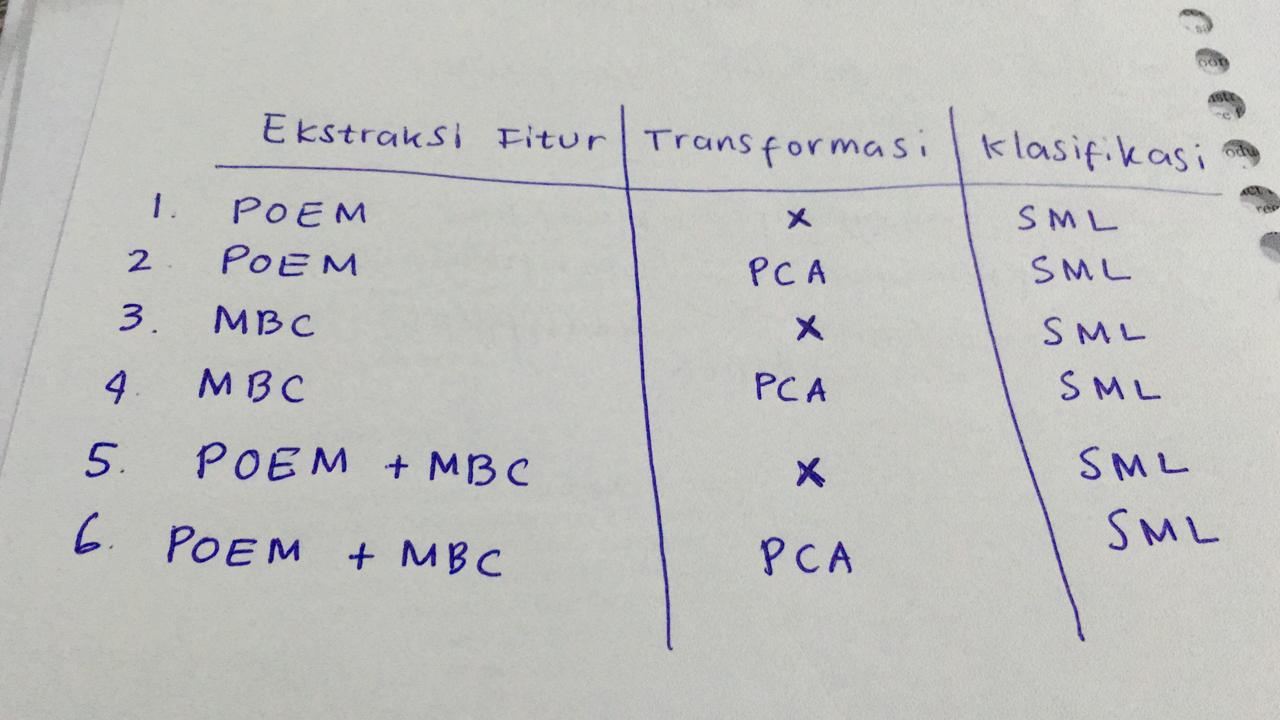 Ekstraksi Fitur Transformasi Klasifikasi
1. POEM x SML
2. POEM PCA SML
3. MBC x SML
4. MBC PCA SML
5. POEM + MBC x SML
6. POEM + MBC PCA SML